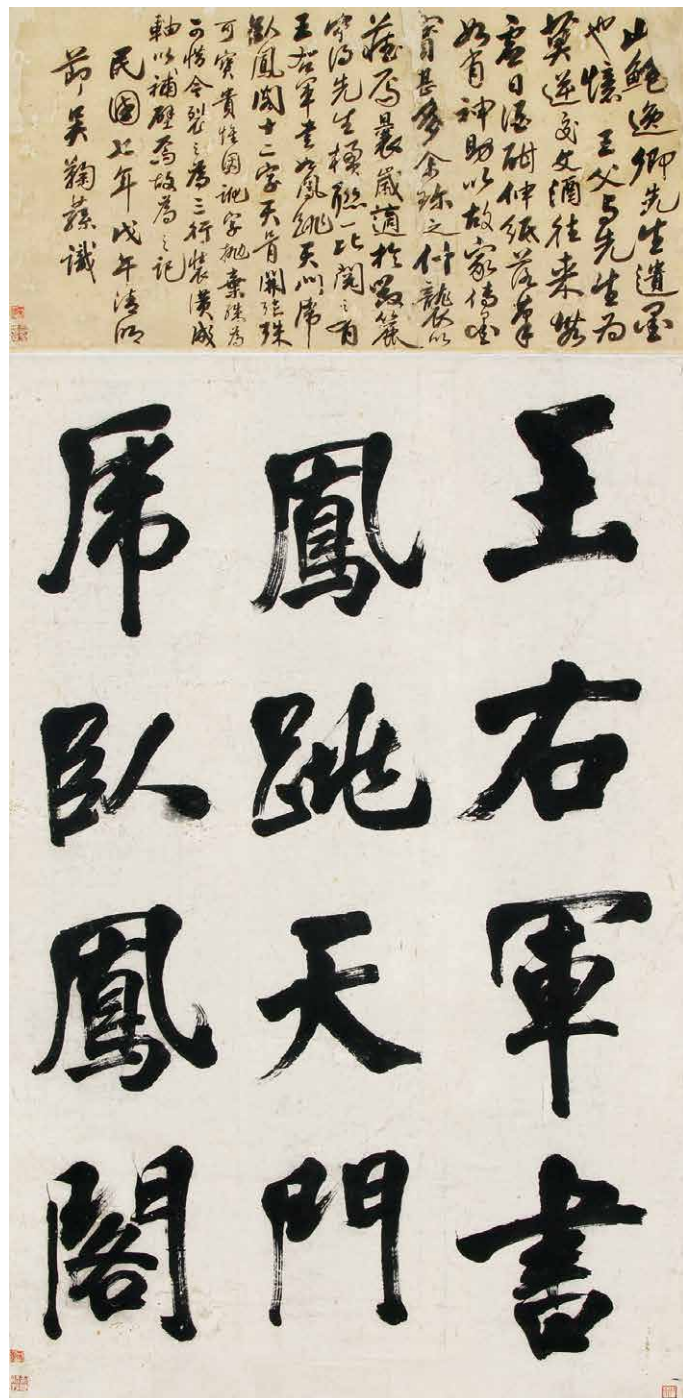 此鲍逸卿先生遺墨
也憶 王父与先生为
莫逆交文酒往来
每日酒酣伸紙落筆
如有神助以故家傳墨
寶甚多余珍之什襲以
藏焉曩歲適於敝簏
先生橫联一比閲之有
王右軍書如鳳跳天门虎
臥鳳閣十二字天骨開張殊
可寶貴惟因訛字拋棄殊为
可惜令裂之為三行裝潢成
軸以補壁焉故為之記
民國七年戊午清明
節吳鞠蓀識
王右軍書
鳳跳天門
虎臥鳳閣